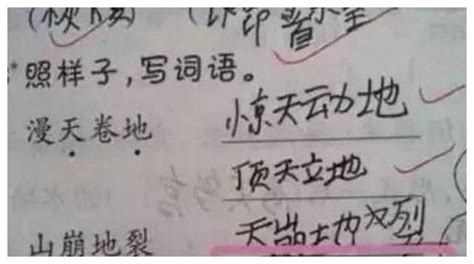 照样子,写词语。
漫天卷地 惊天动地
顶天立地
山崩地裂 天崩地裂